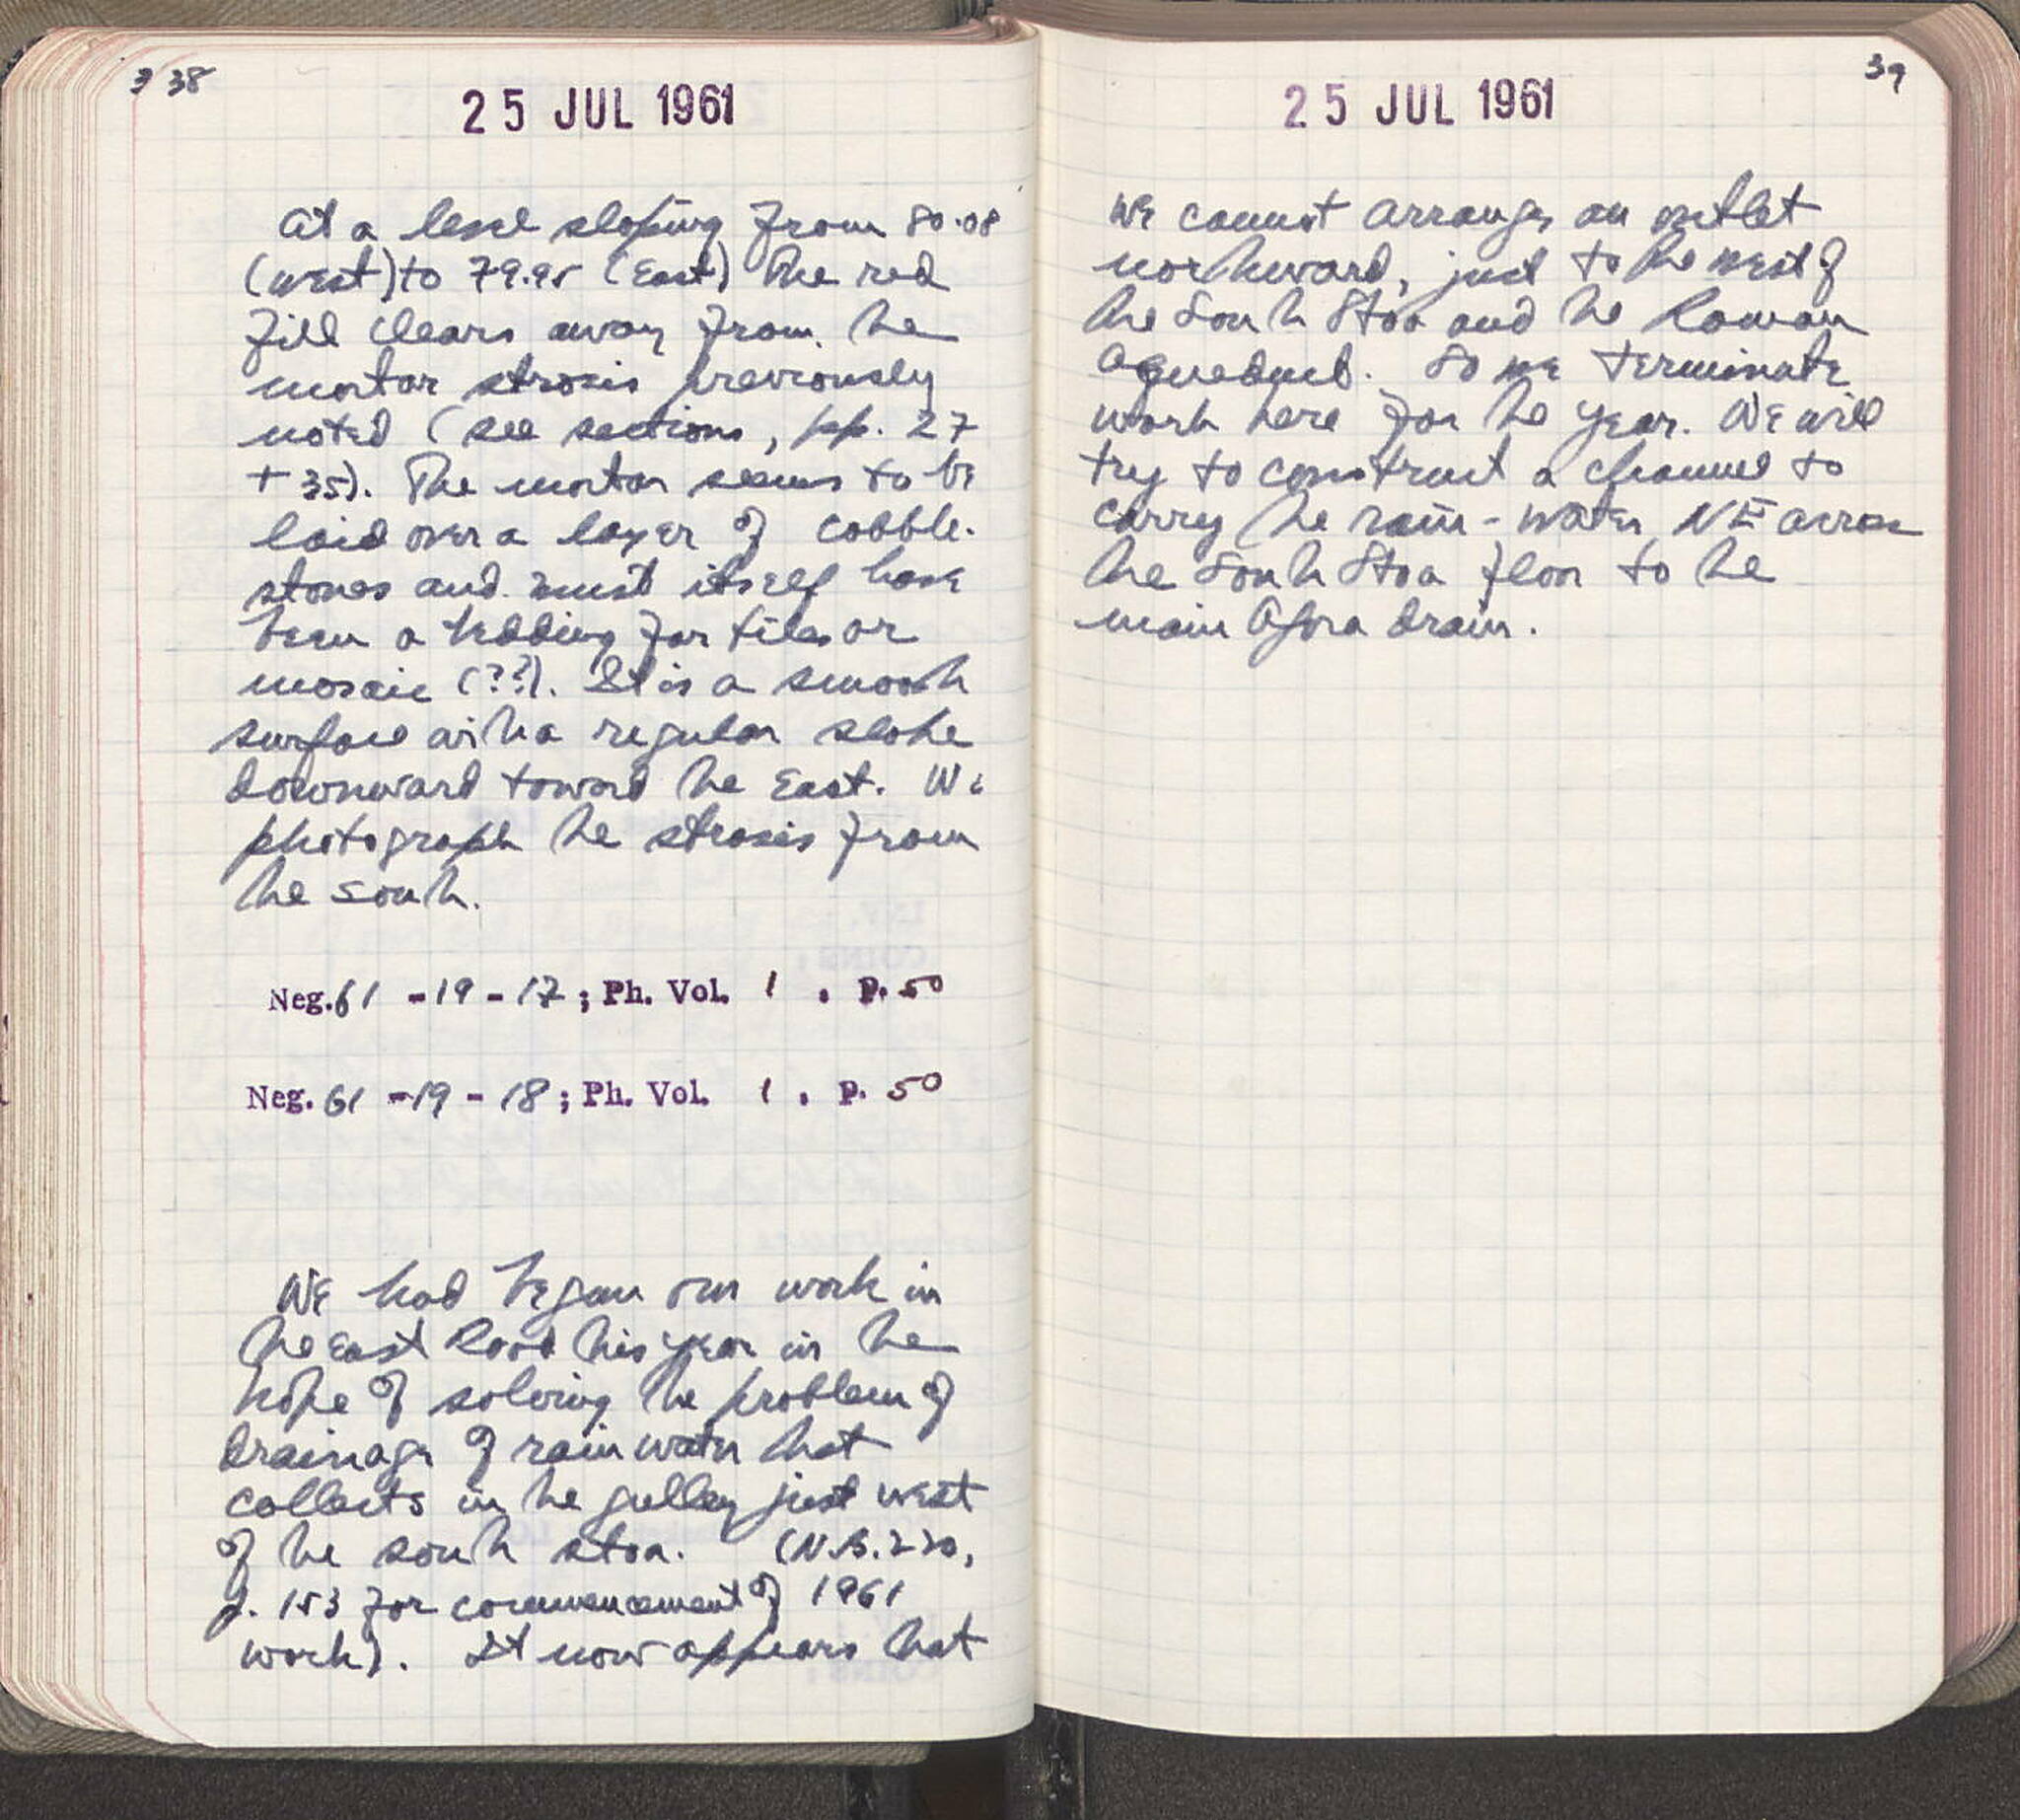 38
25 JUL 1961
At a level sloping from 80.08
(west) to 79.95 (East) the red
fill clears away from the
mortar strosis previously
noted (see sections, pp. 27
+ 35). The mortar seems to be
laid over a layer of cobble-
stones and must itself have
been a bedding for tiles or
mosaic (??). It is a smooth
surface with a regular slope
downward toward the East. We
photograph the strosis from
the south.
Neg. 61 - 19 - 17 ; Ph. Vol. 1 . p. 50
Neg. 61 - 19 - 18 ; Ph. Vol. 1 . p. 50
We had begun our work in
the East Road this year in the
hope of solving the problem of
drainage of rain water that
collects in the gulley just west
of the south stoa. (N.B. 220,
p. 153 for commencement of 1961
work). It now appears that
39
25 JUL 1961
we cannot arrange an outlet
northward, just to the west of
the South Stoa and the Roman
aqueduct. So we terminate
work here for the year. We will
try to construct a channel to
carry the rain-water NE across
the South Stoa floor to the
main Agora drain.